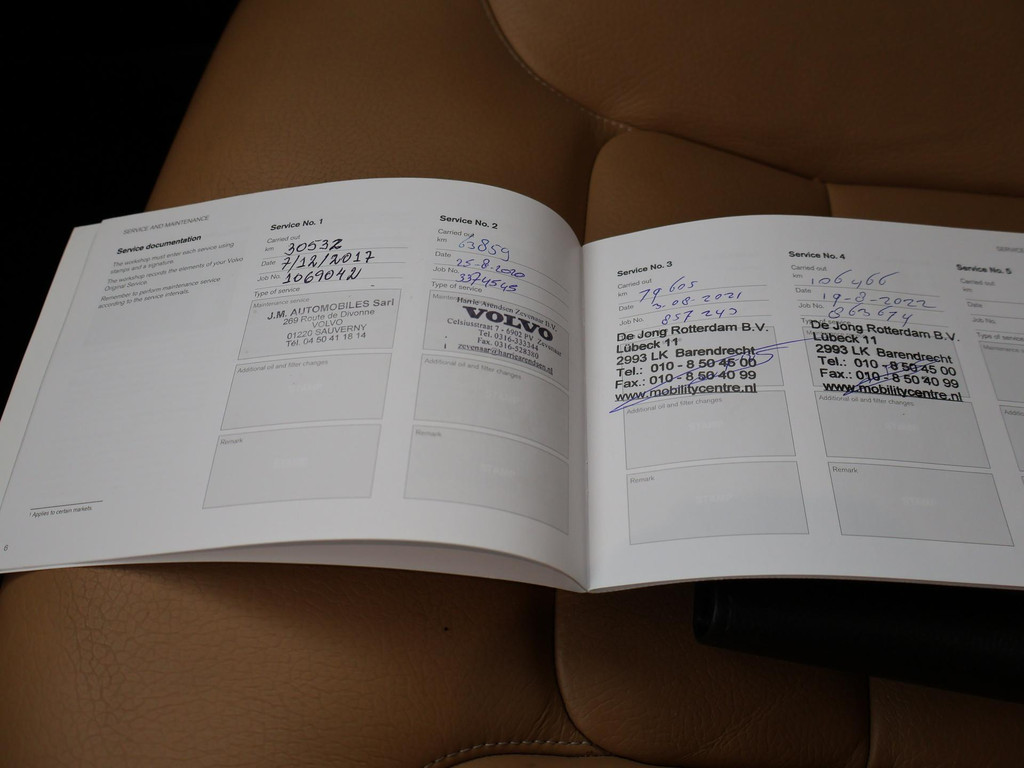 SERVICE AND MAINTENANCE
Service documentation
The workshop must enter each service using
stamps and a signature.
The workshop records the elements of your Volvo
Original Service.
Remember to perform maintenance service
according to the service intervals.
1 Applies to certain markets
6
Service No. 1
Carried out
km 30532
Date 7/12/2017
Job No. 1069042
Type of service
Maintenance service
J.M. AUTOMOBILES Sarl
269 Route de Divonne
VOLVO
01220 SAUVERNY
Tél. 04 50 41 18 14
Additional oil and filter changes
Remark
Service No. 2
Carried out
km 63859
Date 25-8-2020
Job No. 3374545
Type of service
Harrie Arendsen Zevenaar B.V.
VOLVO
Celsiusstraat 7 - 6902 PV Zevenaar
Tel. 0316-333344
Fax. 0316-528380
zevenaar@harriearendsen.nl
Additional oil and filter changes
Remark
Service No. 3
Carried out
km 79605
Date 2-08-2021
Job No. 857243
De Jong Rotterdam B.V.
Lübeck 11
2993 LK Barendrecht
Tel.: 010 - 8 50 45 00
Fax.: 010 - 8 50 40 99
www.mobilitycentre.nl
Additional oil and filter changes
Remark
Service No. 4
Carried out
km 106466
Date 19-8-2022
Job No. 863674
De Jong Rotterdam B.V.
Lübeck 11
2993 LK Barendrecht
Tel.: 010 - 8 50 45 00
Fax.: 010 - 8 50 40 99
www.mobilitycentre.nl
Additional oil and filter changes
Remark
Service No. 5
Carried out
km
Date
Job No.
Type of